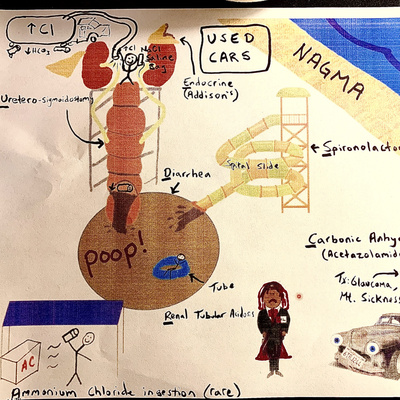 ↑Cl
↓HCO₃
↑Cl NaCl
Saline
Bag
USED
CARS
NAGMA
Endocrine
(Addison's)
Uretero-sigmoidostomy
Spironolacto
Slide
Diarrhea
poop!
Carbonic Anhy
(Acetazolamide
Tx: Glaucoma,
Mt. Sickness
Tube
Renal Tubular
AC
Ammonium Chloride ingestion (rare)